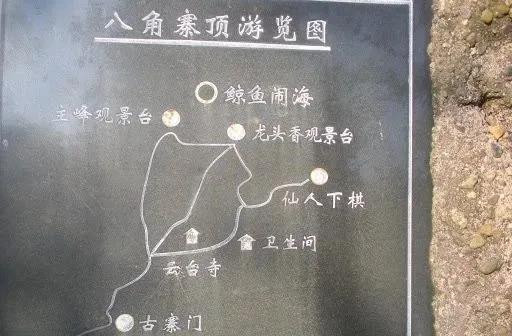 八角寨顶游览图
鲸鱼闹海
主峰观景台
龙头香观景台
仙人下棋
卫生间
云台寺
古寨门